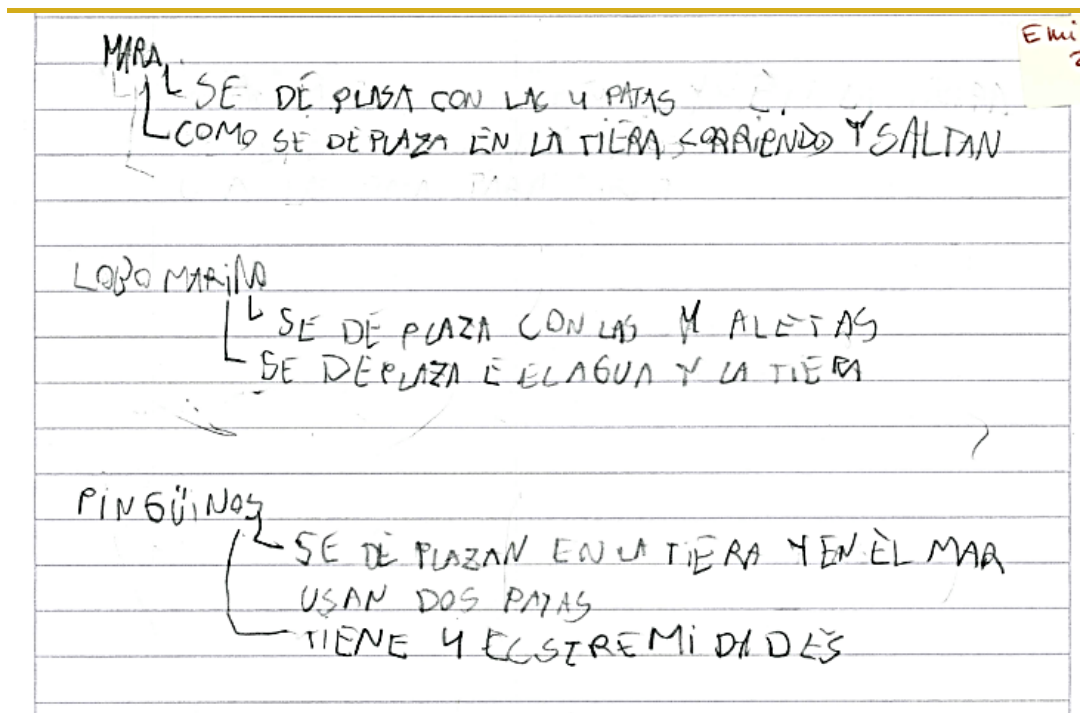 Emi
MARA
SE DE PLASA CON LAS 4 PATAS
COMO SE DEPLAZA EN LA TIERA CORRIENDO Y SALTAN
LOBO MARiNO
SE DE PLAZA CON LAS 4 ALETAS
SE DEPLAZA E EL AGUA Y LA TIERA
PiNGÜiNOS
SE DE PLAZAN EN LA TiERA Y EN EL MAR
USAN DOS PATAS
TIENE 4 ECSTREMiDADES